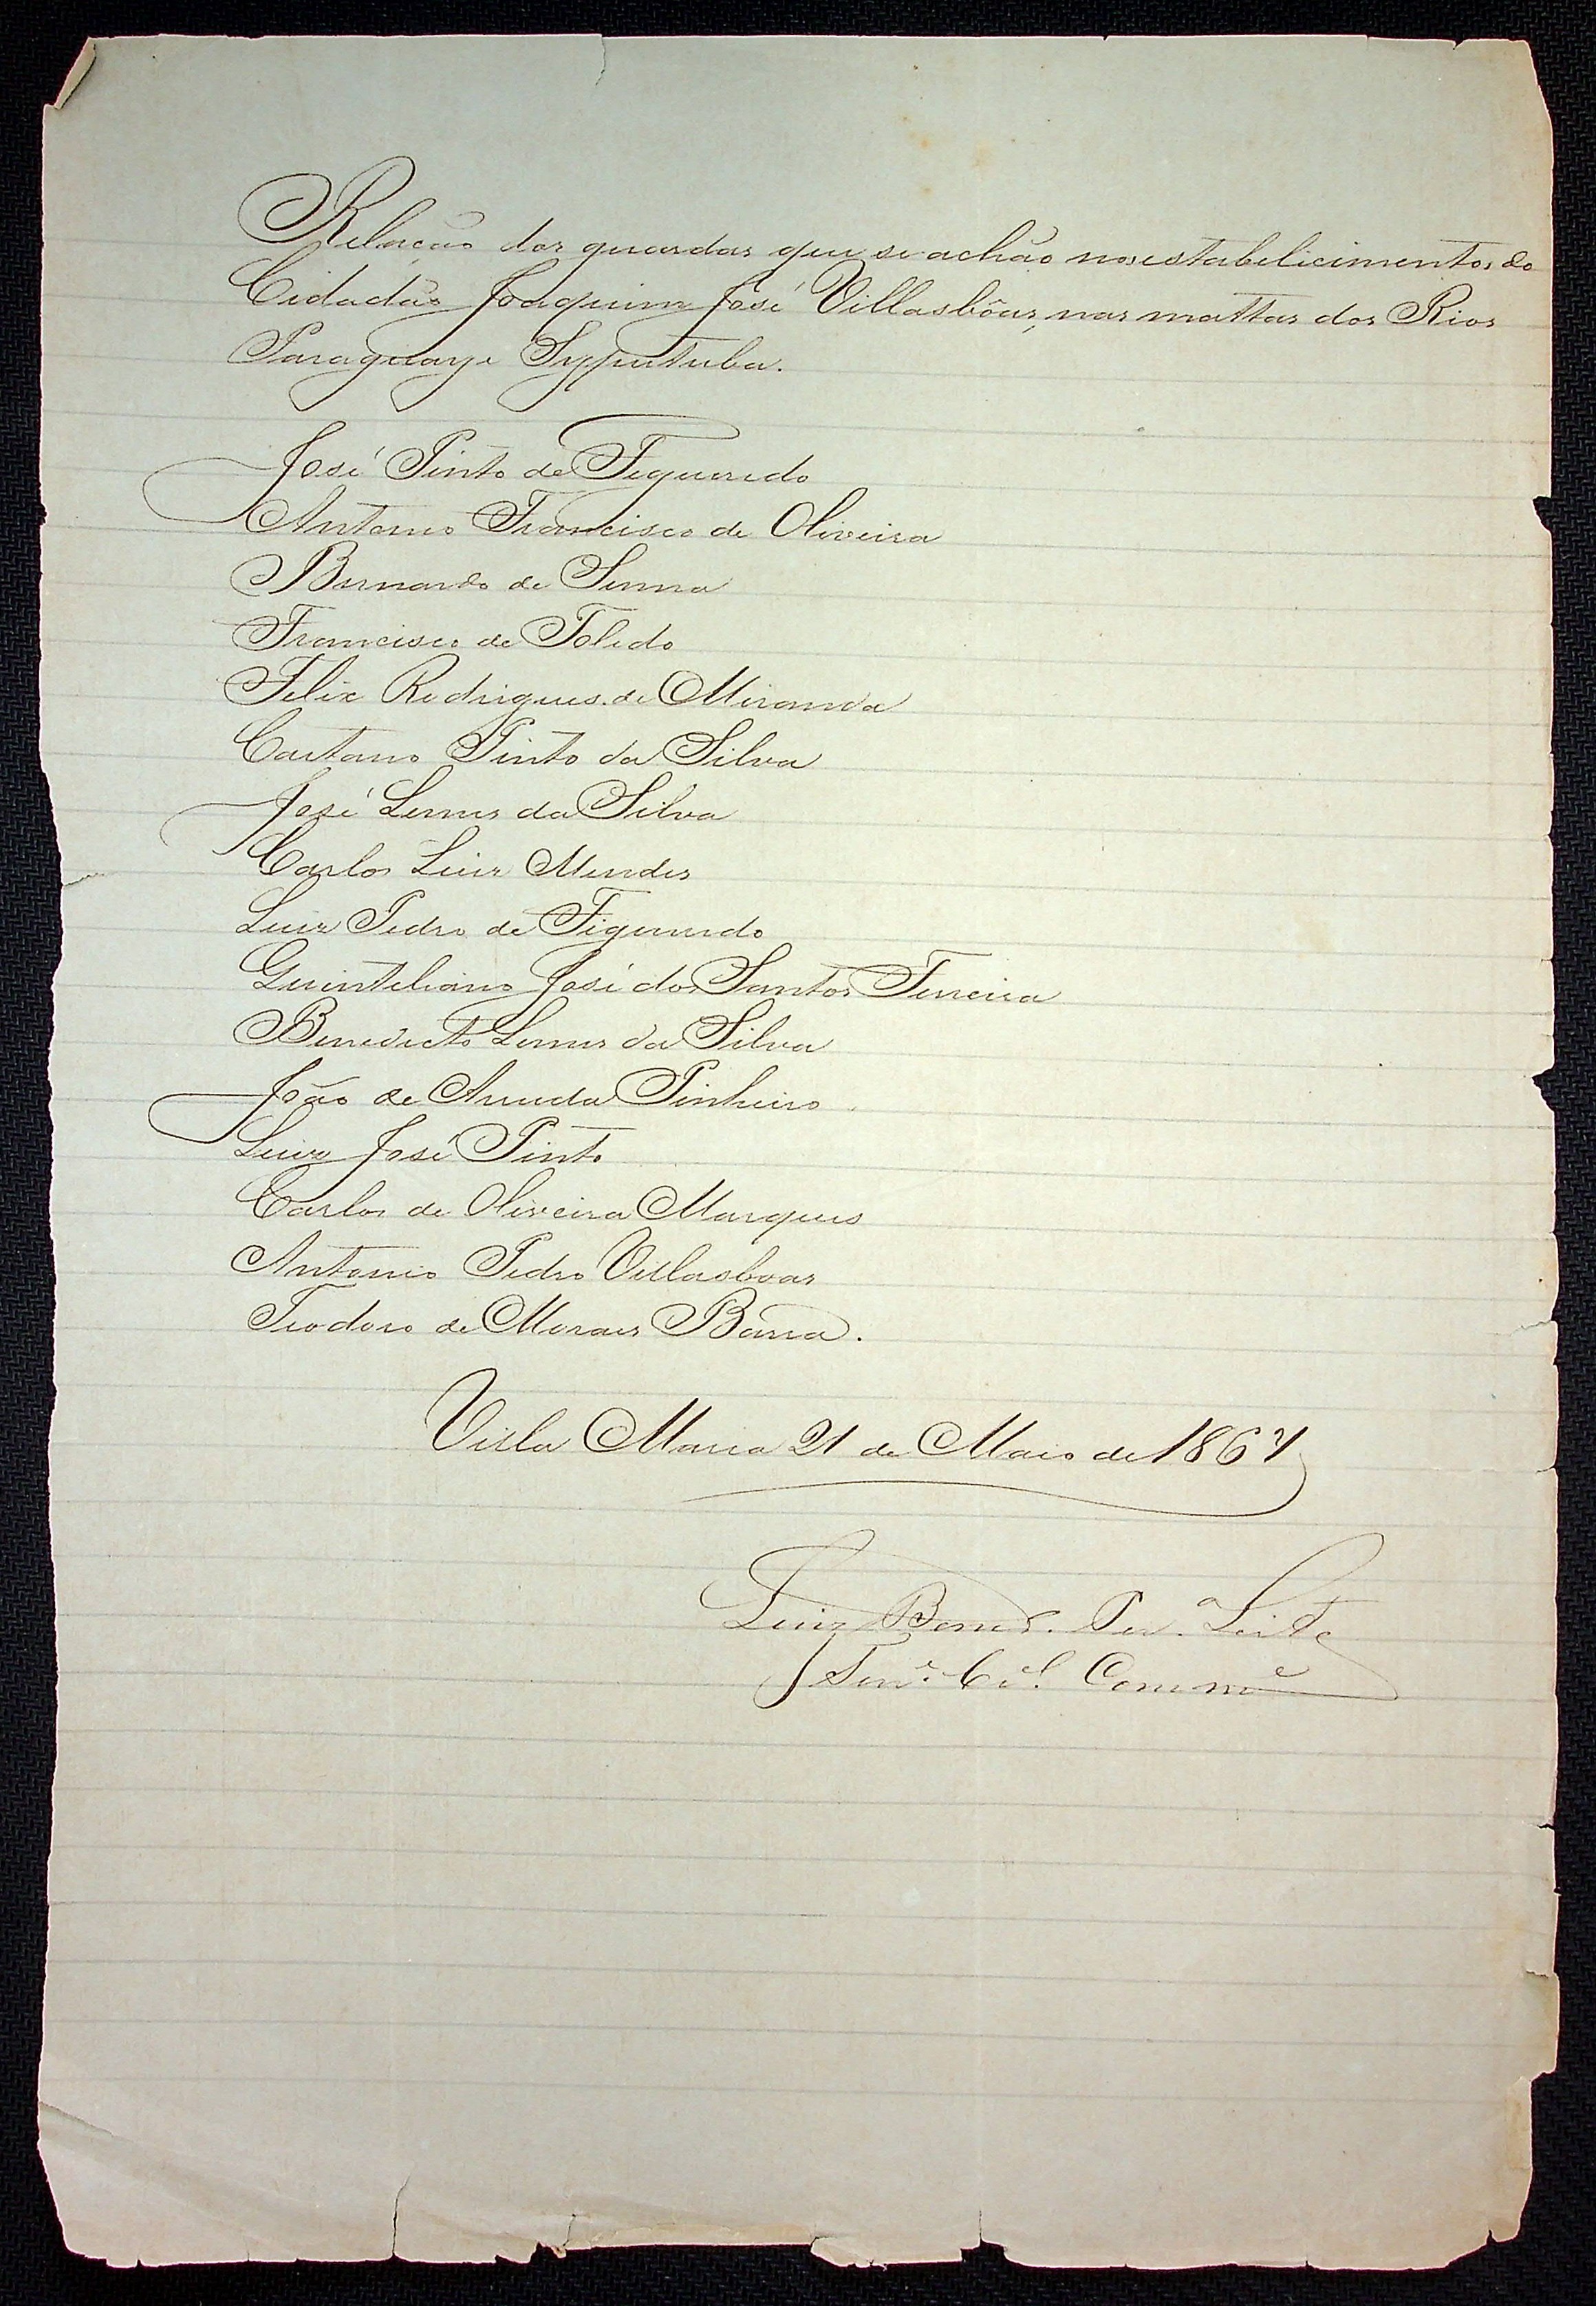 Relação dos guardas que se achão nos estabelicimentos do
Cidadão Joaquim José Villasbôas, nas mattas dos Rios
Paraguay e Syputuba.
José Pinto de Figueredo
Antonio Francisco de Oliveira
Bernardo de Senna
Francisco de Toledo
Felix Rodrigues de Miranda
Caetano Pinto da Silva
José Lemes da Silva
Carlos Luiz Mendes
Luiz Pedro de Figueredo
Quinteliano José dos Santos Ferreira
Benedicto Lemes da Silva
João de Arruda Pinheiro
Luiz José Pinto
Carlos de Oliveira Marques
Antonio Pedro Villasboas
Teodoro de Moraes Barra.
Villa Maria 21 de Maio de 1867
Luiz Bened. Per.ª Leite
Ten.e C.el Comm.e